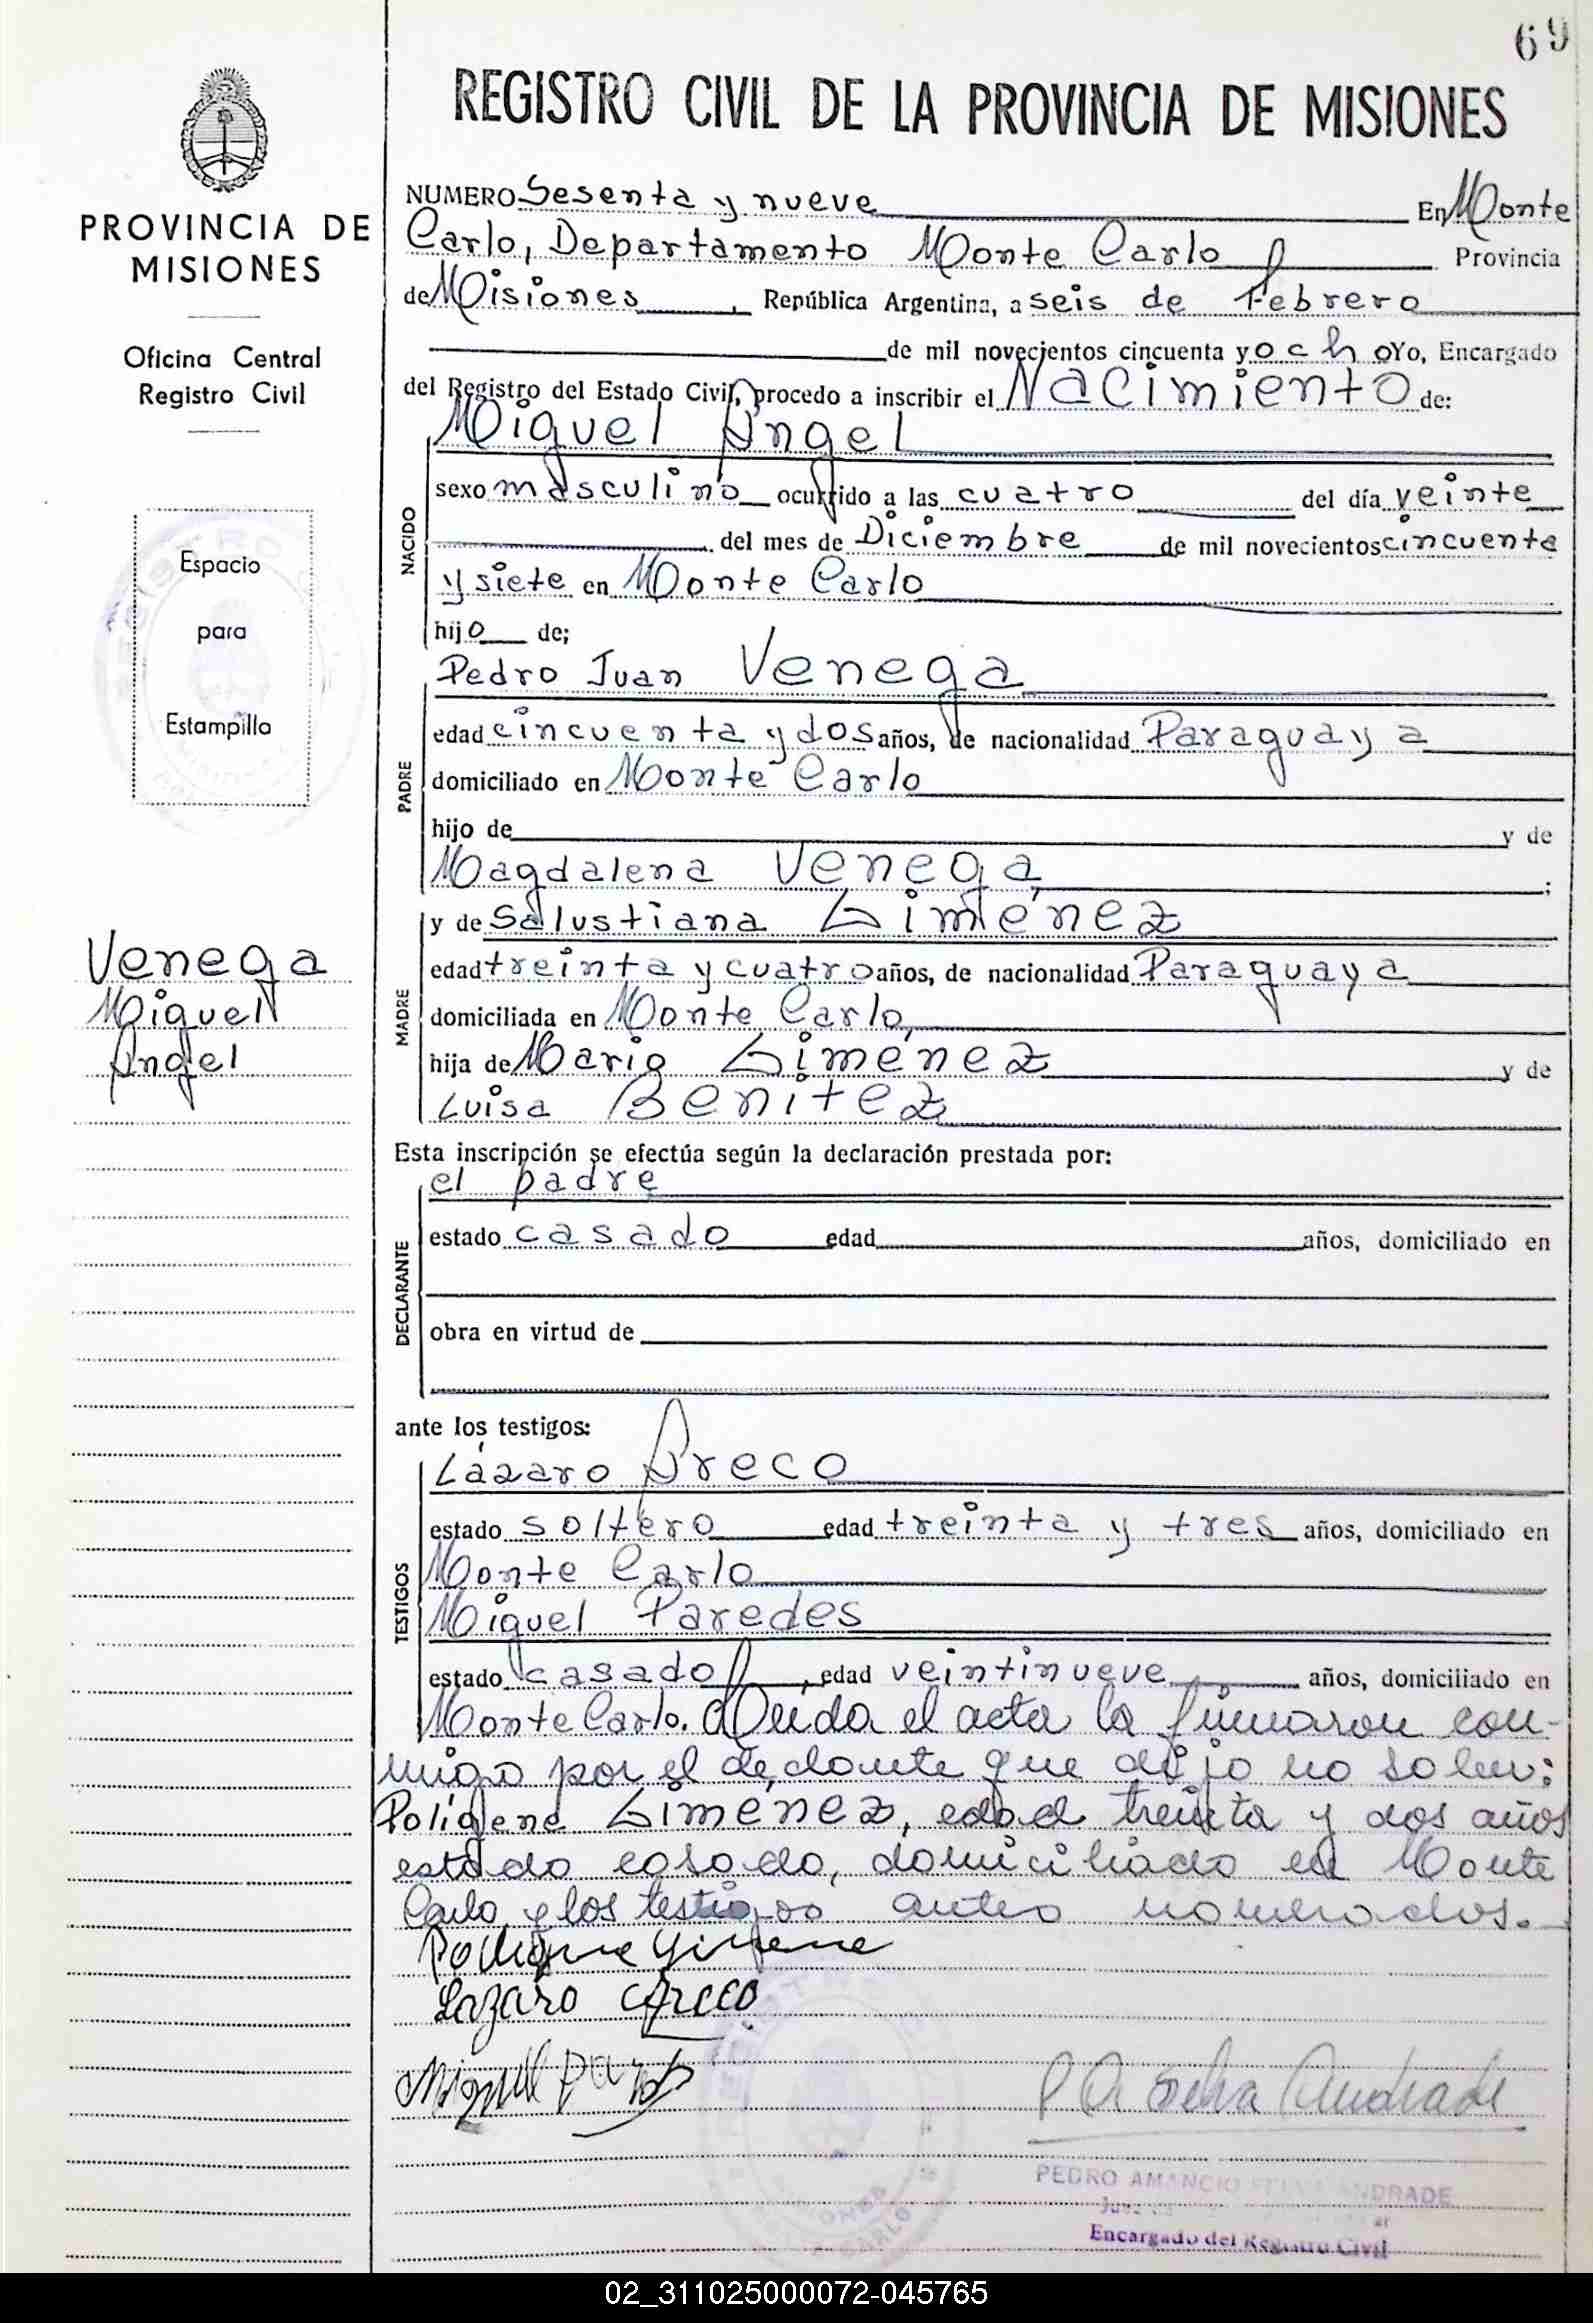 69
REGISTRO CIVIL DE LA PROVINCIA DE MISIONES
PROVINCIA DE
MISIONES
Oficina Central
Registro Civil
Espacio
para
Estampilla
Venega
Miguel
Angel
NUMERO Sesenta y nueve En Monte
Carlo, Departamento Monte Carlo Provincia
de Misiones, República Argentina, a seis de Febrero
de mil novecientos cincuenta y ocho Yo, Encargado
del Registro del Estado Civil, procedo a inscribir el Nacimiento de:
NACIDO
Miguel Angel
sexo masculino ocurrido a las cuatro del día veinte
del mes de Diciembre de mil novecientos cincuenta
y siete en Monte Carlo
hijo de;
PADRE
Pedro Juan Venega
edad cincuenta y dos años, de nacionalidad Paraguaya
domiciliado en Monte Carlo
hijo de y de
Magdalena Venega;
MADRE
y de Salustiana Giménez
edad treinta y cuatro años, de nacionalidad Paraguaya
domiciliada en Monte Carlo,
hija de Mario Giménez y de
Luisa Benítez
Esta inscripción se efectúa según la declaración prestada por:
DECLARANTE
el padre
estado casado edad años, domiciliado en
obra en virtud de
ante los testigos:
TESTIGOS
Lázaro Areco
estado soltero edad treinta y tres años, domiciliado en
Monte Carlo
Miguel Paredes
estado casado, edad veintinueve años, domiciliado en
Monte Carlo. Leída el acta la firmaron con-
migo por el declarante que dijo no saber:
Polígene Giménez, edad treinta y dos años
estado casado, domiciliado en Monte
Carlo y los testigos antes nombrados.
Lazaro Areco
Miguel
P A Selva Andrade
PEDRO AMANCIO SELVA ANDRADE
Encargado del Registro Civil
02_311025000072-045765